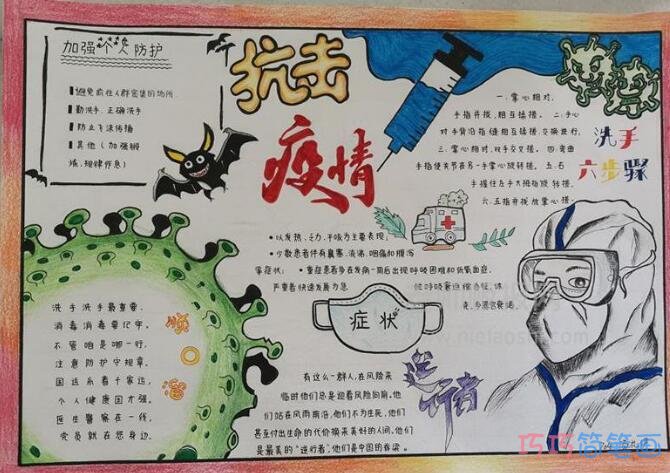 加强个人防护
避免前往人群密集的场所.
勤洗手、正确洗手
防止飞沫传播
其他(加强锻
炼,规律作息)
抗击
疫情
一.掌心相对,
手指并拢,相互揉搓。二.手心
对手背沿指缝相互揉搓,交换进行,
三.掌心相对,双手交叉搓。四.弯曲
手指使关节在另一手掌心旋转搓。五.右
手握住左手大拇指旋转搓。
六.五指并拢放掌心搓。
洗手
六步骤
以发热、乏力、干咳为主要表现;
少数患者伴有鼻塞、流涕、咽痛和腹泻
等症状;
重症患者多在发病一周后出现呼吸困难和低氧血症,
严重者快速发展为急
性呼吸窘迫综合征、休
克、多器官衰竭.
症状
洗手洗手最重要,
消毒消毒要记牢。
不管咱是哪一行,
注意防护守规章。
国运系着千家运,
个人健康国才强。
医生警察在一线,
党员就在您身边.
顺口溜
逆行者
有这么一群人,在风险来
临时他们总是迎着风险向前,他
们站在风雨雨浴,他们不为生死,他们
甚至付出生命的代价换来美好的人间,他们
是最美的“逆行者”,他们是中国的脊梁.
巧巧简笔画